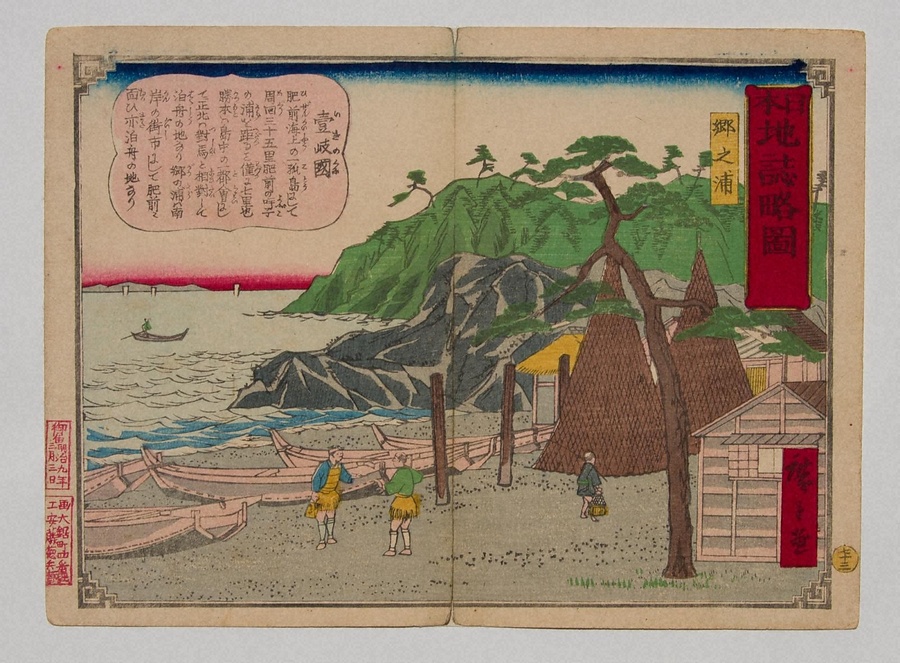 日本地誌略圖
郷之浦
壹岐國
肥前海上の一孤島にして
周回三十五里肥前の呼子
の浦を距ること僅に七里也
勝本ハ島中の一都會にし
て正北に對馬と相對して
泊舟の地なり郷の浦ハ南
岸の街市にして肥前に
面ひ亦泊舟の地なり
廣重画
御届明治九年
三月三日
画大鋸町四番地
工安藤徳兵衛